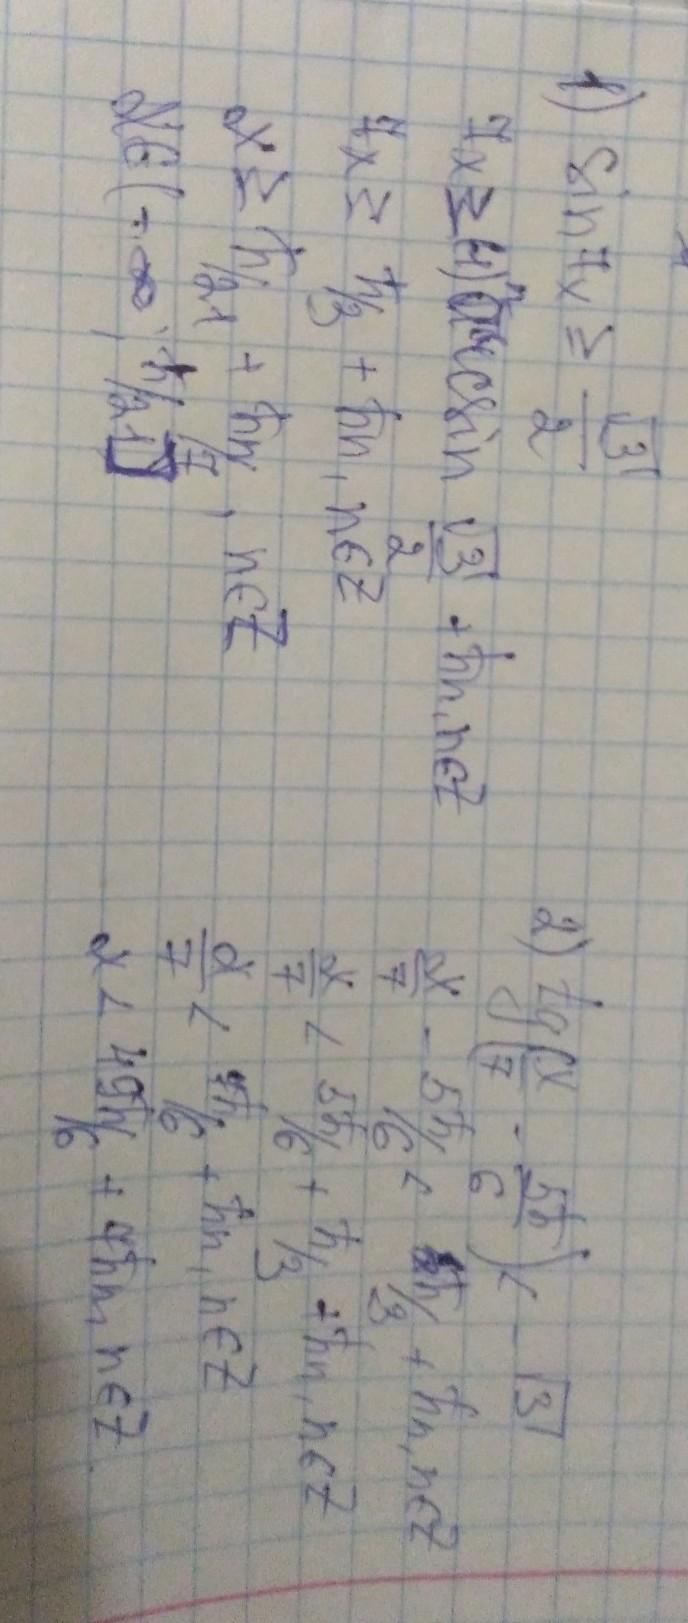 1) sin 7x ≥ √3/2
7x ≥ (-1)ⁿ arcsin √3/2 + πn, n∈Z
7x ≥ π/3 + πn, n∈Z
x ≥ π/21 + πn/7, n∈Z
x∈(-∞; π/21]
2) tg(x/7 - 5π/6) < -√3
x/7 - 5π/6 < π/3 + πn, n∈Z
x/7 < 5π/6 + π/3 + πn, n∈Z
x/7 < 7π/6 + πn, n∈Z
x < 49π/6 + 7πn, n∈Z